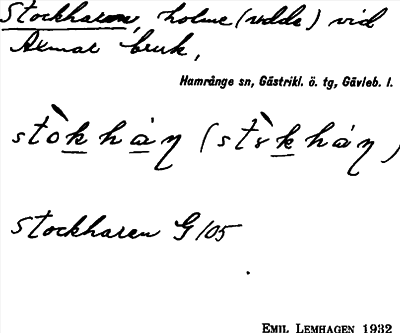 Stockharen, holme (udde) vid
Axmar bruk,
Hamrånge sn, Gästrikl. ö. tg, Gävleb. l.
stòkhàŋ (stòkhàŋ)
Stockharen G 105
EMIL LEMHAGEN 1932